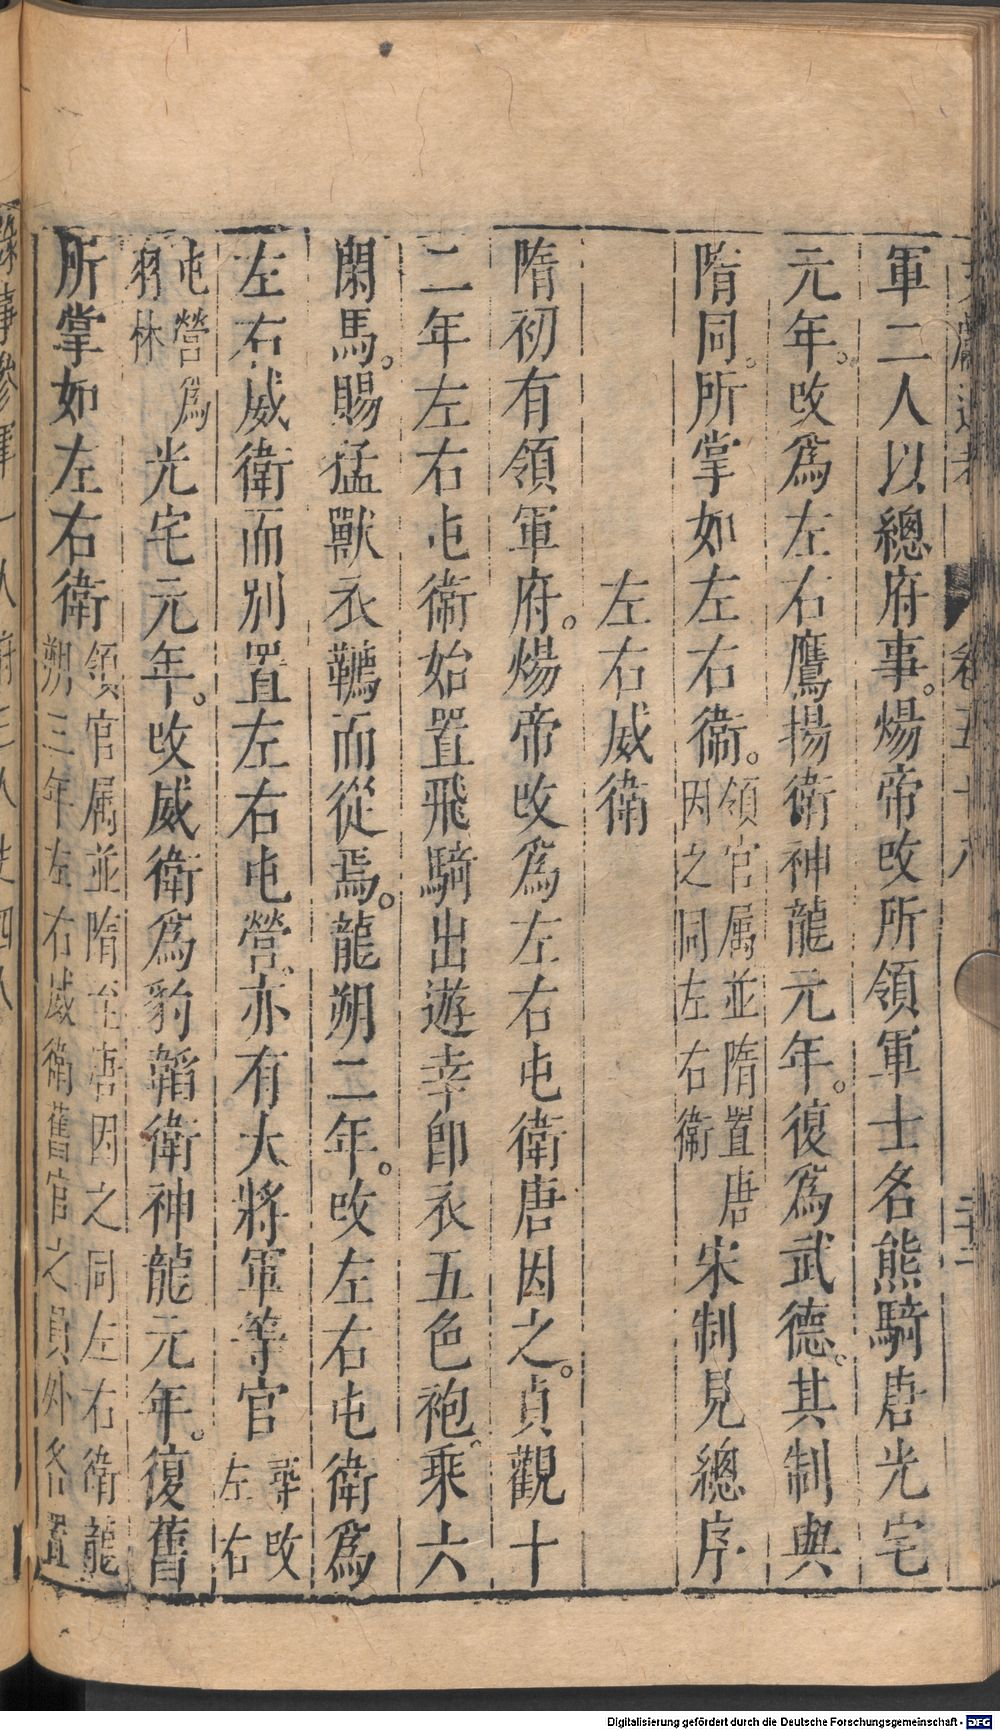 軍二人以總府事。煬帝改所領軍士名熊騎唐光宅
元年。改爲左右鷹揚衛神龍元年。復爲武德。其制與
隋同。所掌如左右衞。領官属並隋置唐因之同左右衞宋制見總序
左右威衛
隋初有領軍府。煬帝改爲左右屯衛唐因之。貞觀十
二年左右屯衞始置飛騎出遊幸卽衣五色袍。乘六
閑馬。賜猛獸衣韉而從焉。龍朔二年。改左右屯衛爲
左右威衛而別置左右屯營。亦有大將軍等官尋改左右
屯營爲羽林光宅元年。改威衛爲豹韜衛神龍元年。復舊
所掌如左右衛領官属並隋置唐因之同左右衛龍朔三年左右威衛舊官之員外各置
卷五十八
Digitalisierung gefördert durch die Deutsche Forschungsgemeinschaft - DFG